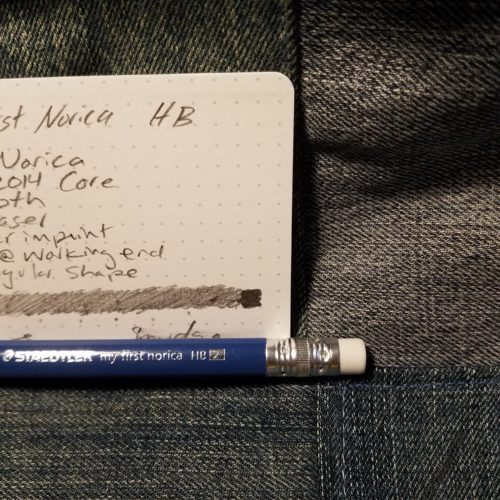 st Norica HB
Norica
2014 Core
oth
aser
r imprint
@ working end
gular shape
STAEDTLER my first norica HB 2